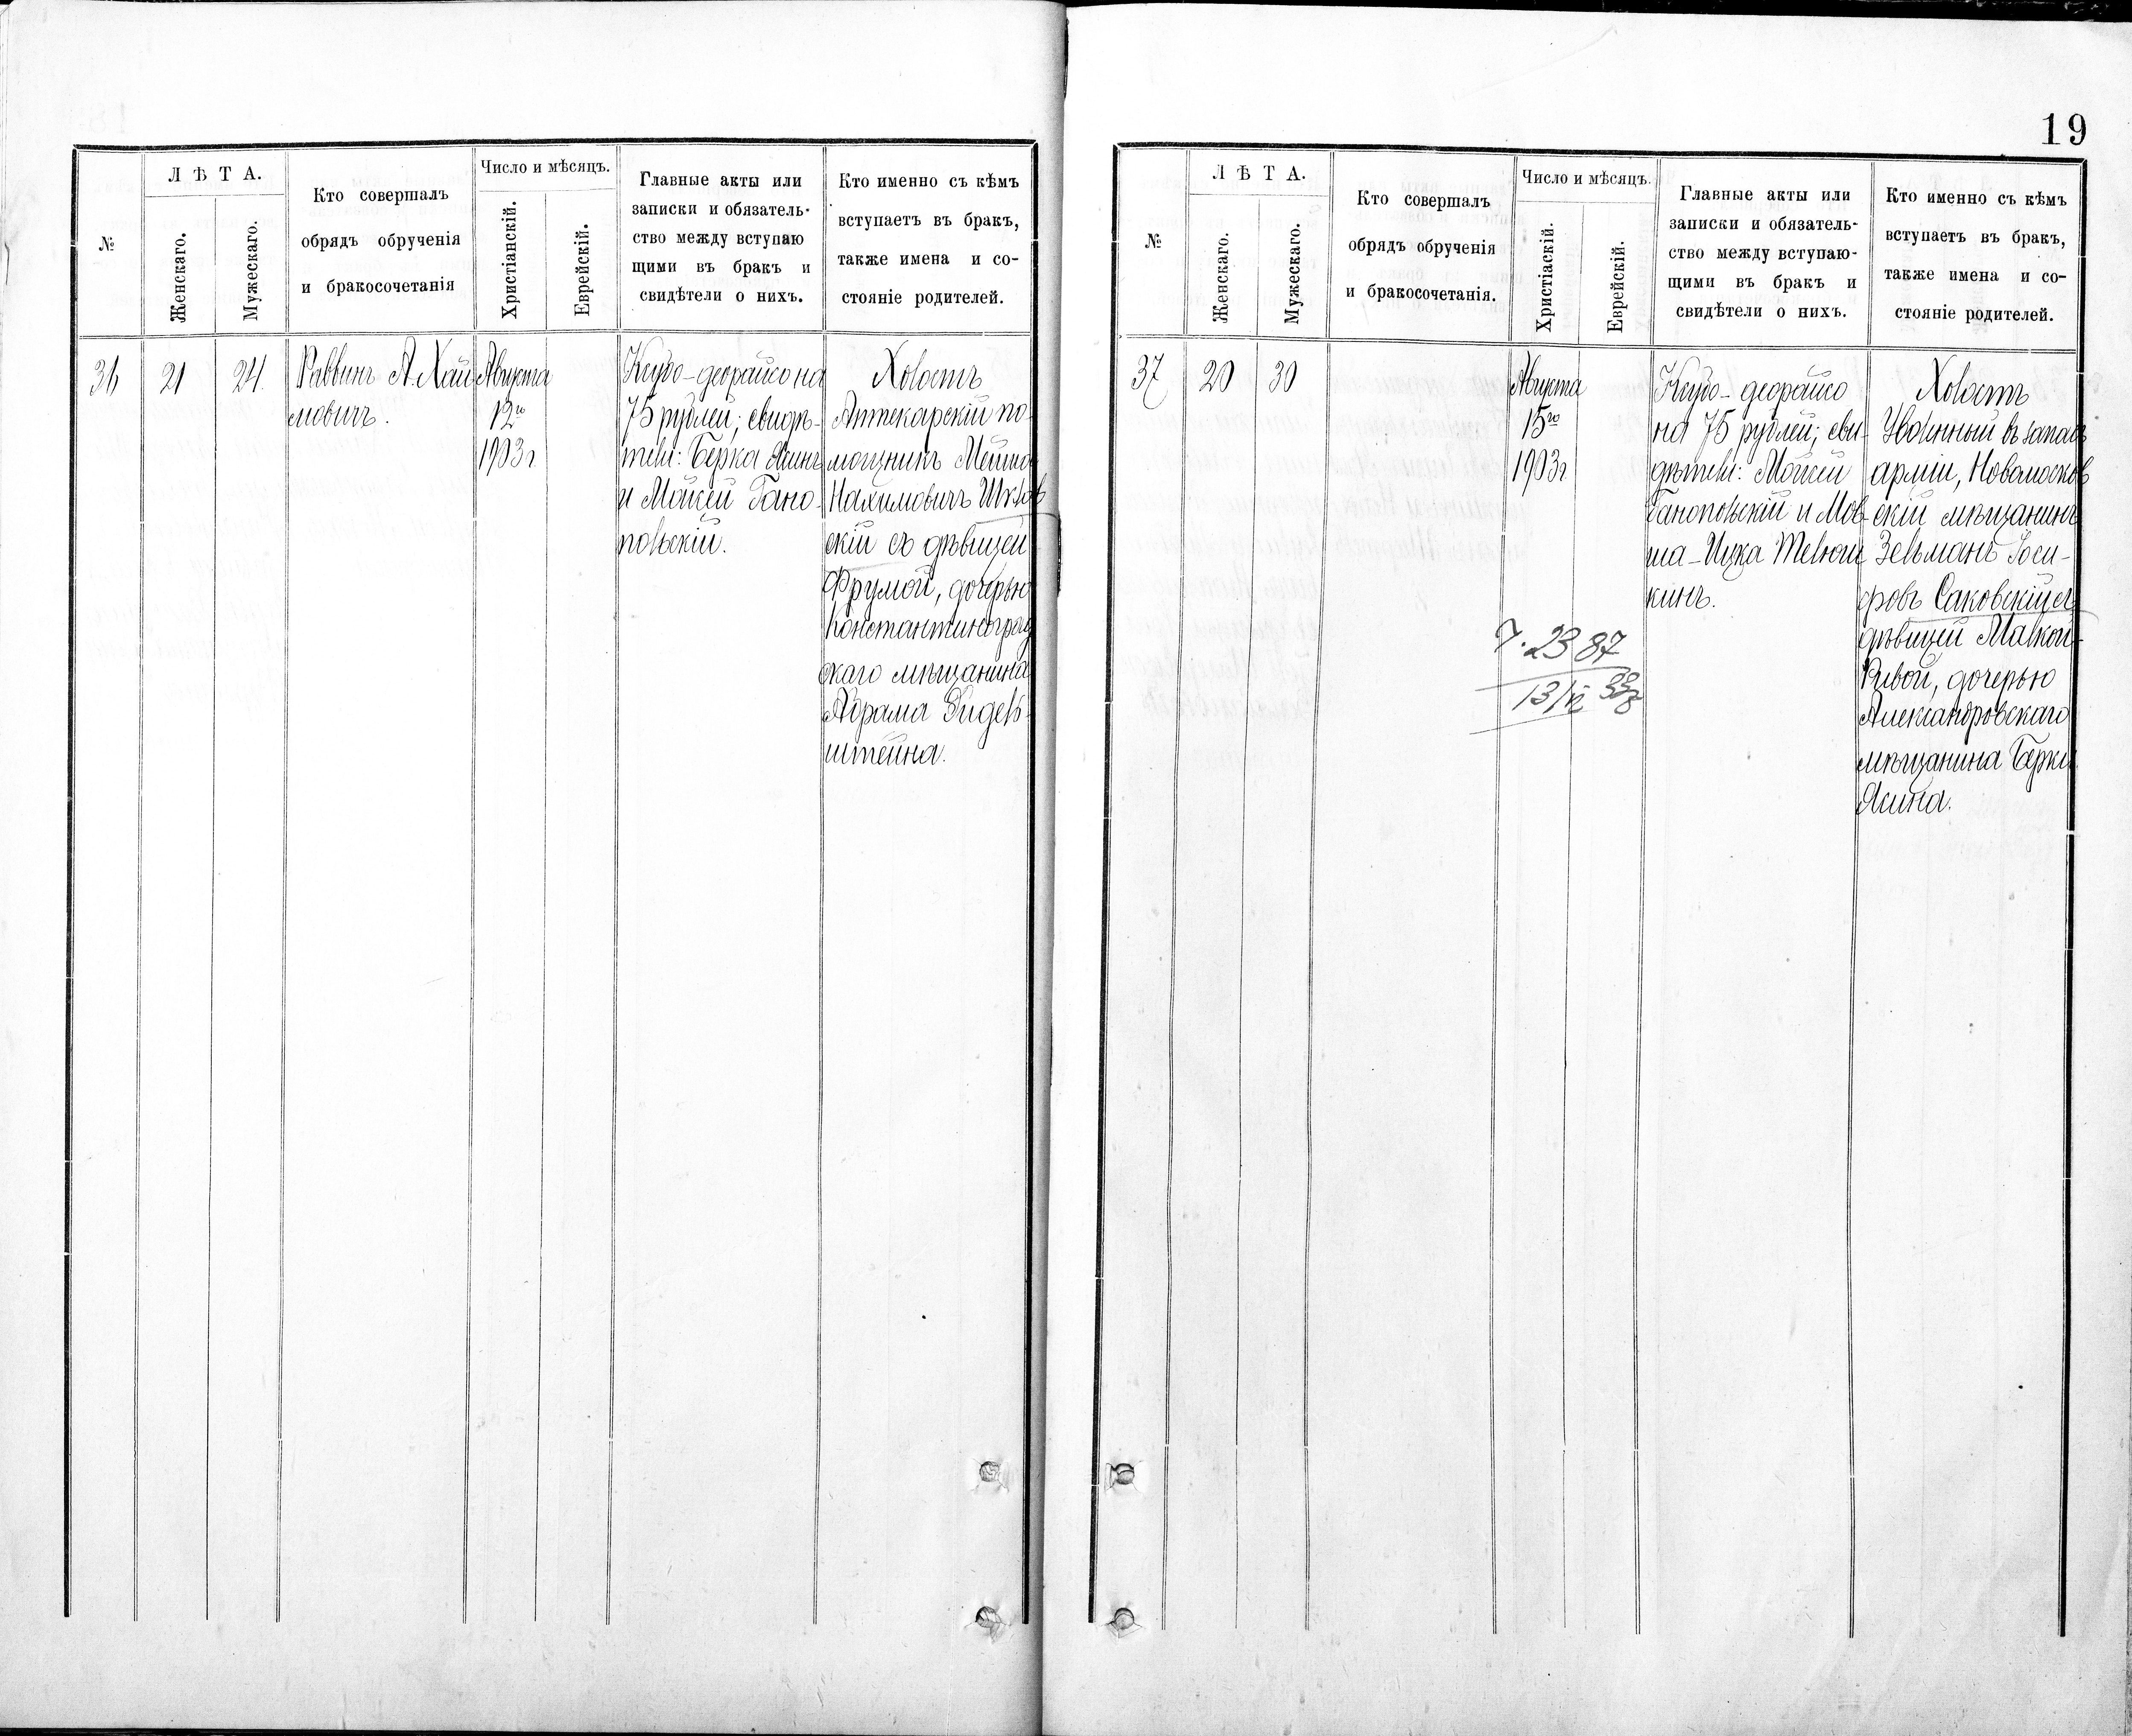 Л Ѣ Т А.
Число и мѣсяцъ.
№
Женскаго.
Мужескаго.
Кто совершалъ
обрядъ обрученія
и бракосочетанія
Христіанскій.
Еврейскій.
Главные акты или
записки и обязатель-
ство между вступаю
щими въ бракъ и
свидѣтели о нихъ.
Кто именно съ кѣмъ
вступаетъ въ бракъ,
также имена и со-
стояніе родителей.
36
21
24.
Раввинъ А. Хай
мовичъ.
Августа
12го
1903 г.
Ксубо-деорайсо на
75 рублей; свидѣ-
тели: Берка Ясинъ
и Мойсей Гано-
польскій.
Холостъ
Аптекарскій по-
мощникъ
Нахимовичъ Шклов
скій съ дѣвицей
Фрумой, дочерью
Константиноград
скаго мѣщанина
Абрама
штейна.
19
Л Ѣ Т А.
Число и мѣсяцъ.
№
Женскаго.
Мужескаго.
Кто совершалъ
обрядъ обрученія
и бракосочетанія.
Христіаскій.
Еврейскій.
Главные акты или
записки и обязатель-
ство между вступаю-
щими въ бракъ и
свидѣтели о нихъ.
Кто именно съ кѣмъ
вступаетъ въ бракъ,
также имена и со-
стояніе родителей.
37
20
30
Августа
15го
1903 г.
Ксубо-деорайсо
на 75 рублей; сви-
дѣтели: Мойсей
Ганопольскій и Мов-
ша-Ицка Телюш
кинъ.
Холостъ
Уволенный въ запасъ
арміи, Новомосков
скій мѣщанинъ
Зельманъ Іоси-
фовъ Саковскій съ
дѣвицей Малкой-
Ривой, дочерью
Александровскаго
мѣщанина Берки
Ясина.
2387
13/